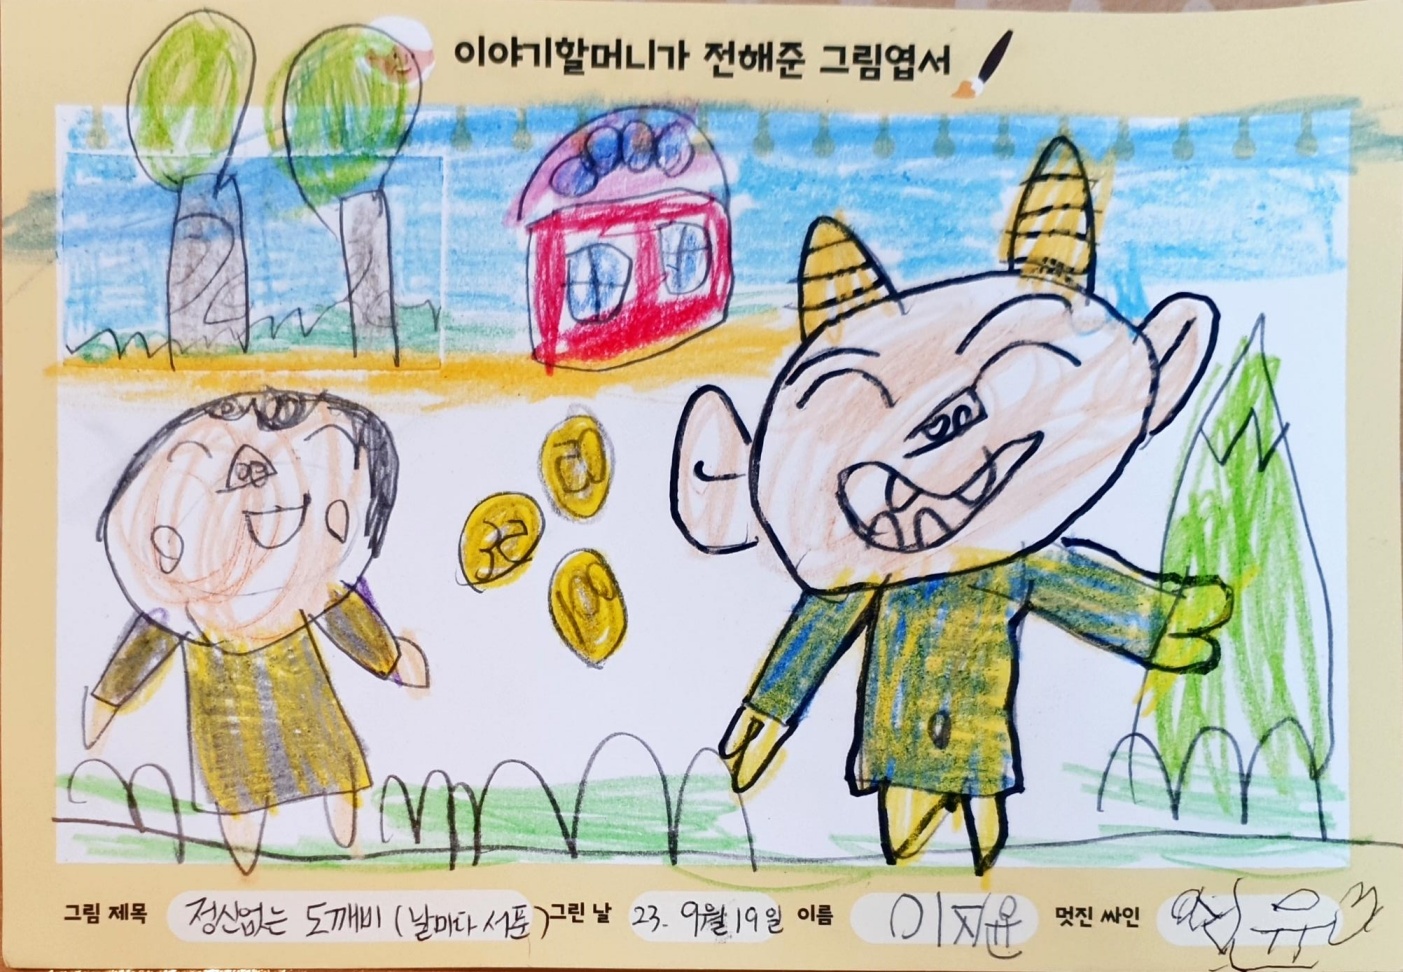 이야기할머니가 전해준 그림엽서
그림 제목 정신없는 도깨비 (날마다 서푼) 그린 날 23. 9월 19일 이름 이지윤 멋진 싸인